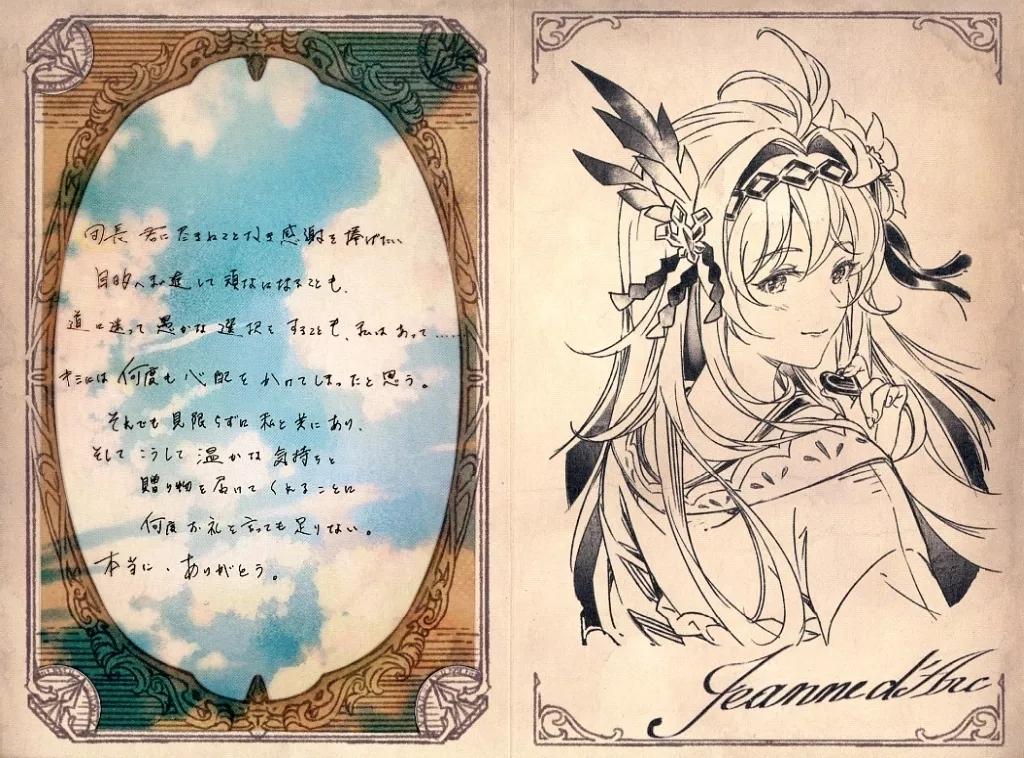 団長 君にたまわることなき感謝を捧げたい
目的へ邁進して頑なになることも、
道に迷って愚かな選択をすることも、私はあって……
キミには何度も心配をかけてしまったと思う。
それでも見限らずに私と共にあり、
そしてこうして温かな気持ちと
贈り物を届けてくれることに
何度お礼を言っても足りない。
本当に、ありがとう。
Jeanne d'Arc